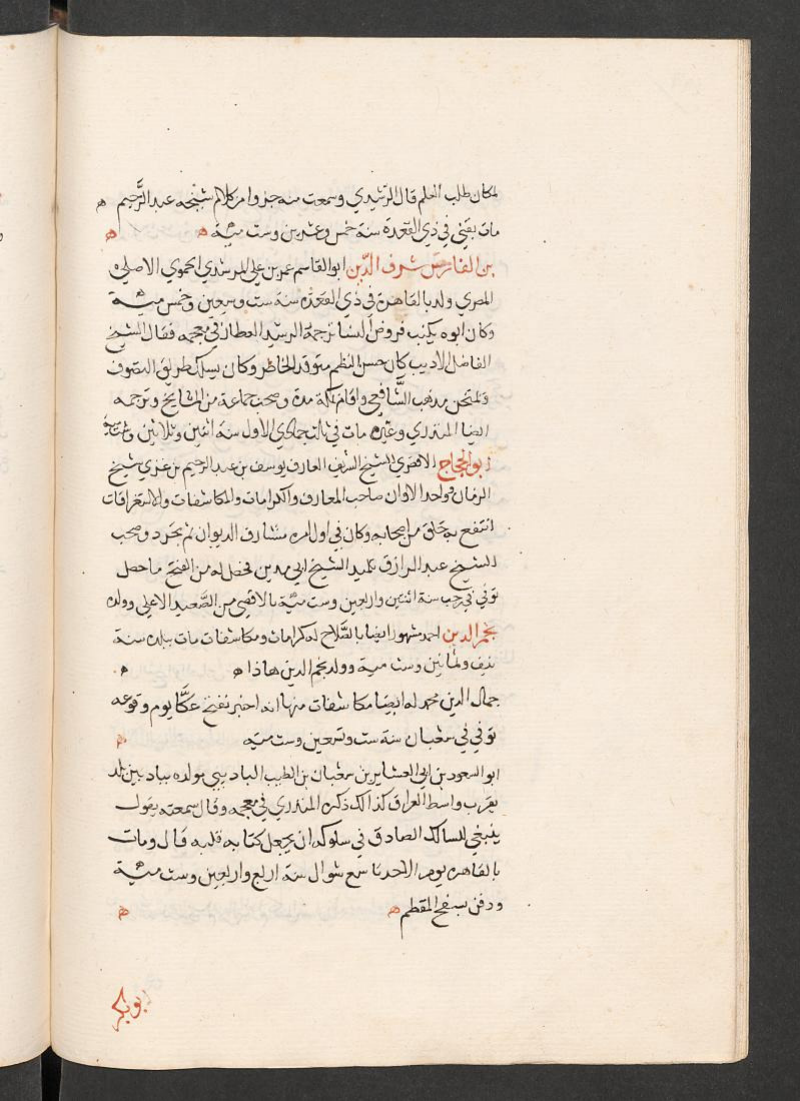 لمكان طلب العلم قال الرشيدي وسمعت منه جزوا من كلام شيخه عبد الرَّحيم ه
مات بقنى في ذي القعدة سنة خمس وعشرين وست مئة ه ه
بن الفارض شرف الدّين ابو القاسم عمر بن علي المرشدي الحموي الاصل ه
المصري ولد بالقاهرة في ذي القعده سنة ست وسبعين وخمس مئة
وكان ابوه يكتب فروض النسا ترجمة الرسيد العطار في معجمه فقال الشيخ
الفاضل الاديب كان حسن النظم متوقد الخاطر وكان يسلك طريق التصوف
وينتحل مذهب الشَّافعي واقام بمكة مدة وصحب جماعة من المشايخ وترجمه
ايضا المنذري وغيره مات في ثالث جمادي الاول سنة اثنين وثلاثين وستمائة
ابو الحجاج الاقصري الشيخ الشريف العارف يوسف بن عبد الرحيم بن غزي شيخ
الزمان وواحد الاوان صاحب المعارف والكرامات والمكاشفات والاستغراقات
انتفع به خلق من اصحابه وكان في اول امره مشارف الديوان ثم تجرد وصحب
الشيخ عبد الرازق تلميد الشيخ ابي مدين فحصل له من الفتح ما حصل
توفي في رجب سنة اثنتين واربعين وست مئة بالاقصى من الصَّعيد الاعلى وولده
نجم الدين احمد مشهور ايضا بالصَّلاح له كرامات ومكاشفات مات ببلده سنة
نيف وثمانين وست مية وولد نجم الدين هاذا ه ه
جمال الدين محمد له ايضا مكاشفات منها انه اخبر بفتح عكَّا يوم وقوعه
توفي في شعبان سنة ست وتسعين وست ميه ه
ابو السعود بن ابي العشاير بن شعبان بن الطيب الباديبي مولده ببادبين بلد
بقرب واسط العراق كذالك ذكره المنذري في معجمه وقال سمعته يقول
ينبغي للسالك الصادق في سلوكه ان يجعل كتابه قلبه قال ومات
بالقاهره يوم الاحد تاسع شوال سنة اربع واربعين وست مئة
ودفن بسفح المقطم ه ه
ابو بكر